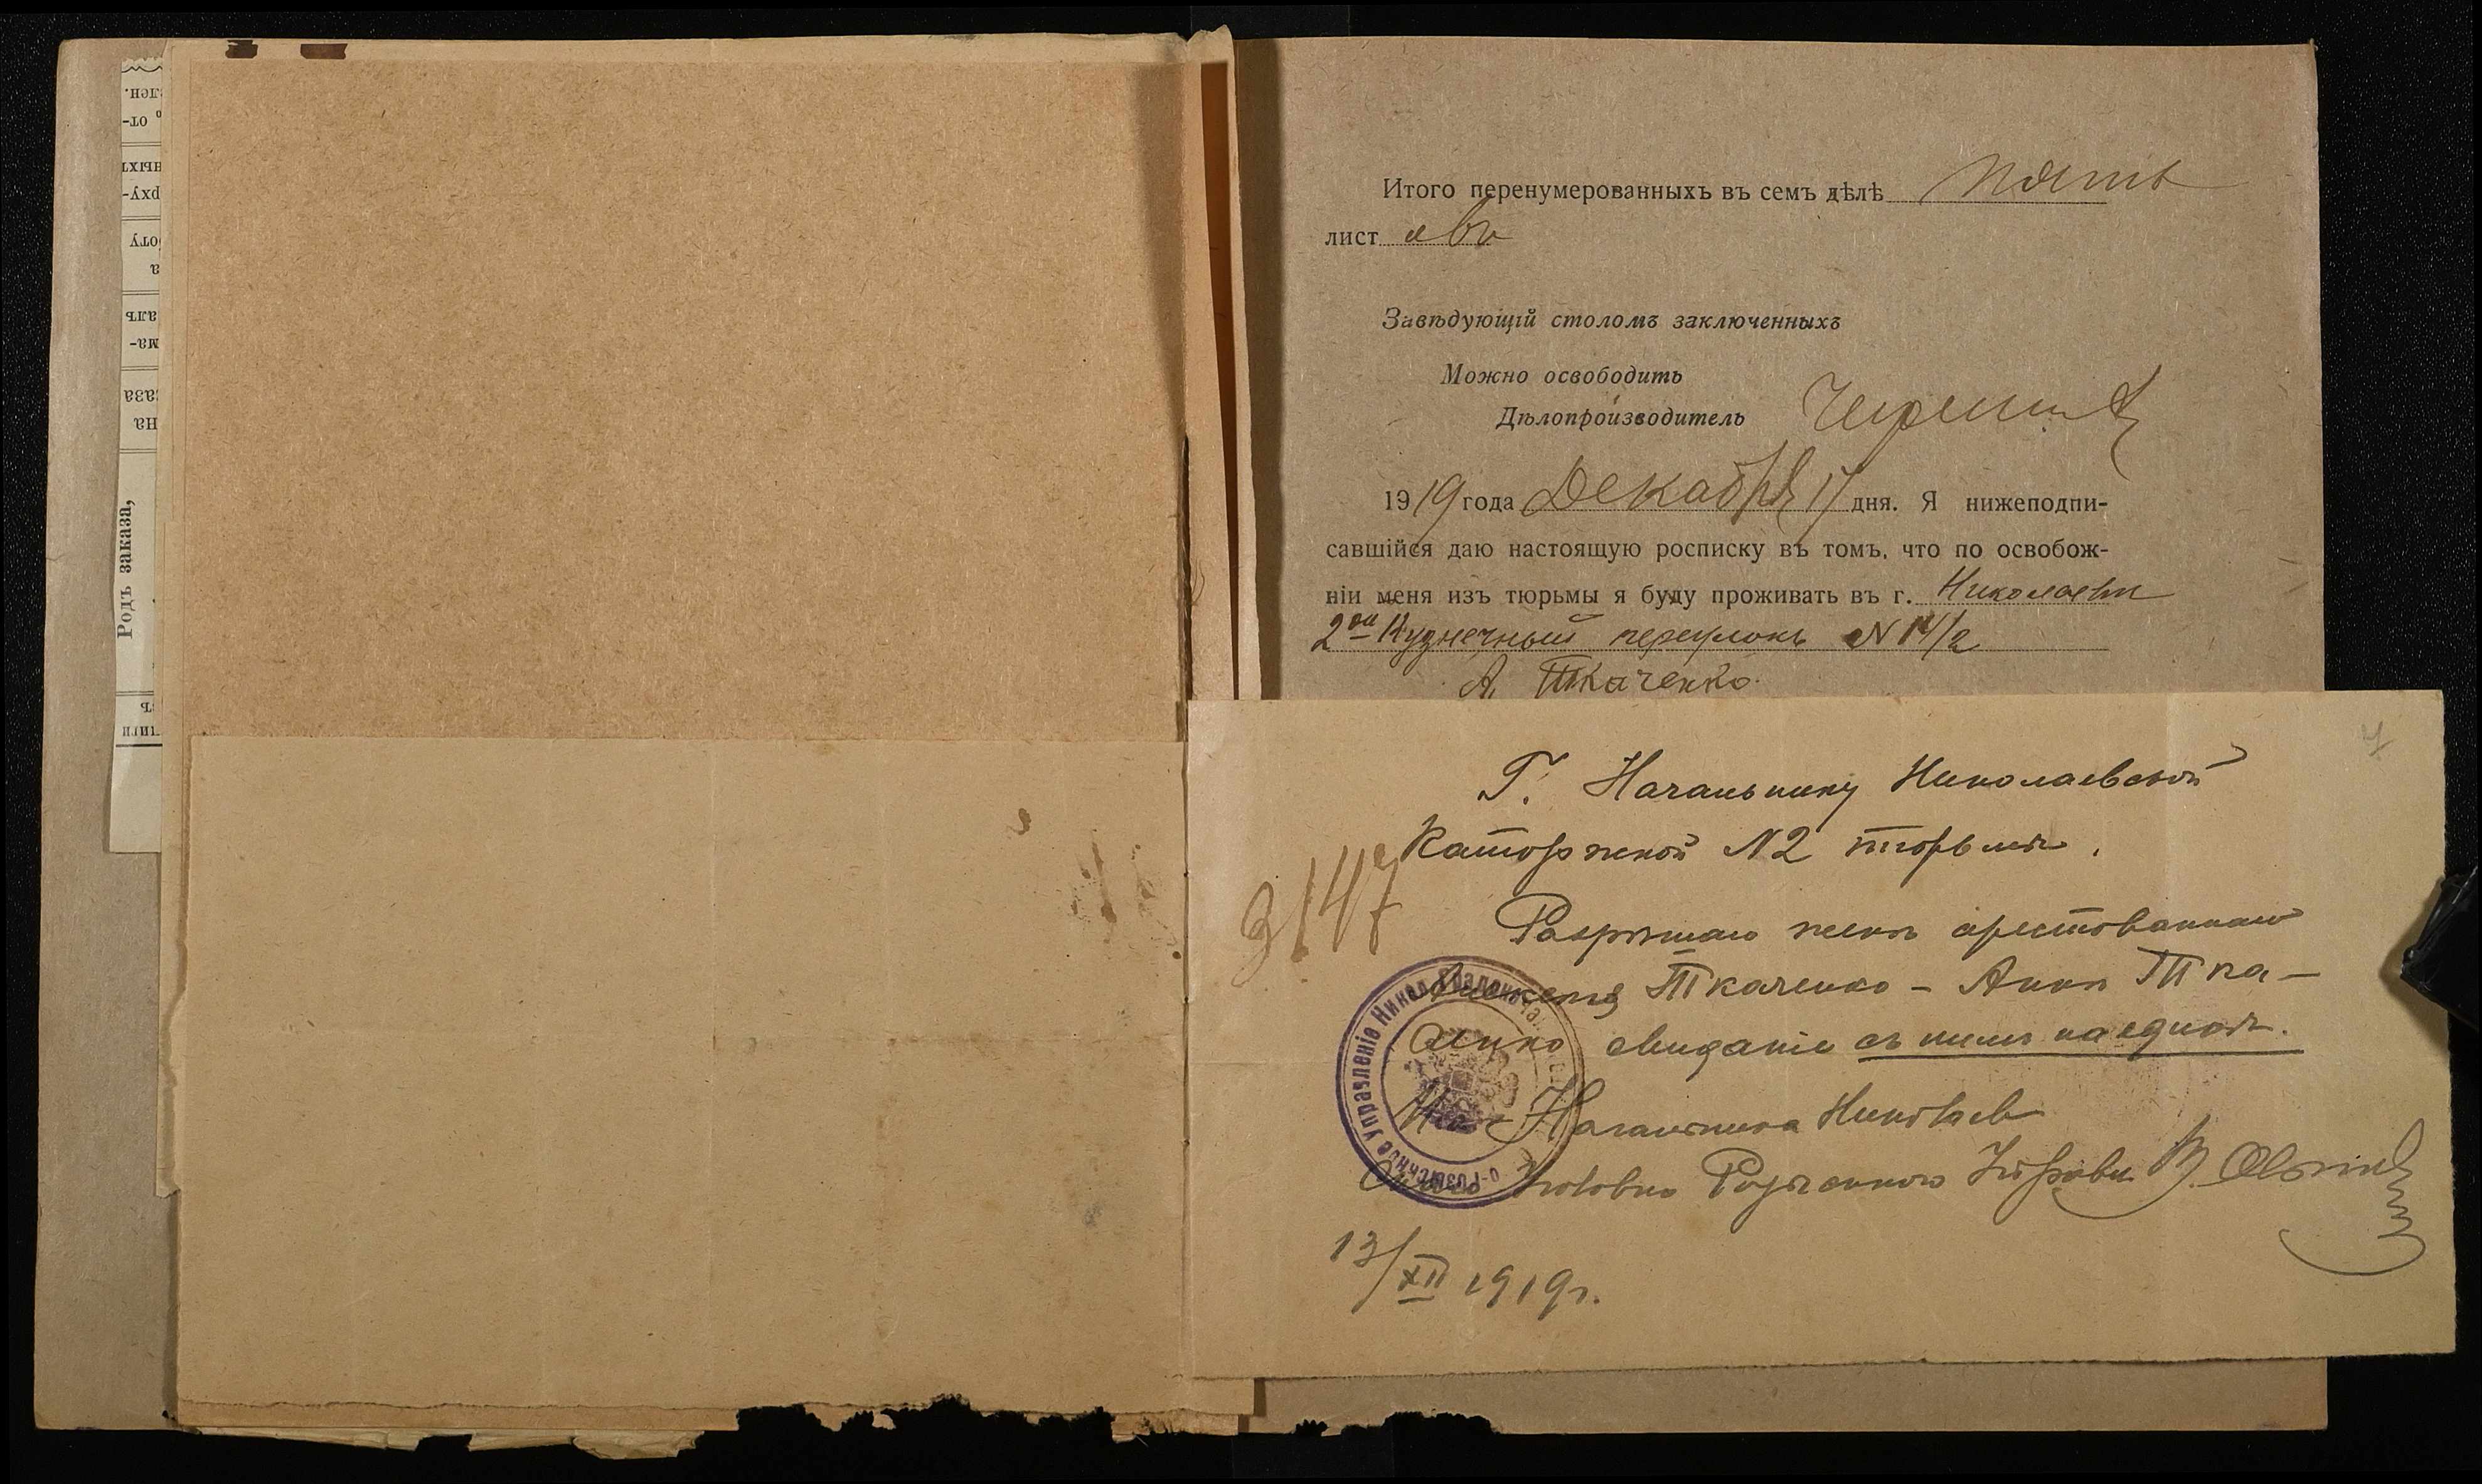 Итого перенумерованныхъ въ семъ дѣлѣ пять
лист овъ
Завѣдующій столомъ заключенныхъ
Можно освободить
Дѣлопроизводитель
1919 года Декабря 17 дня. Я нижеподпи-
савшійся даю настоящую росписку въ томъ, что по освобож-
ніи меня изъ тюрьмы я буду проживать въ г. Николаевѣ
2ой Кузнечный переулокъ N 14/2
А. Ткаченко.
Г. Начальнику Николаевской
Каторжной N2 тюрьмы.
3147
Разрѣшаю женѣ арестованнаго
Алексѣя Ткаченко - Аннѣ Тка-
ченко свиданіе съ нимъ наединѣ.
Начальника Николаев
Розыскного Управл. В.
13/XII 1919 г.
Родъ заказа,